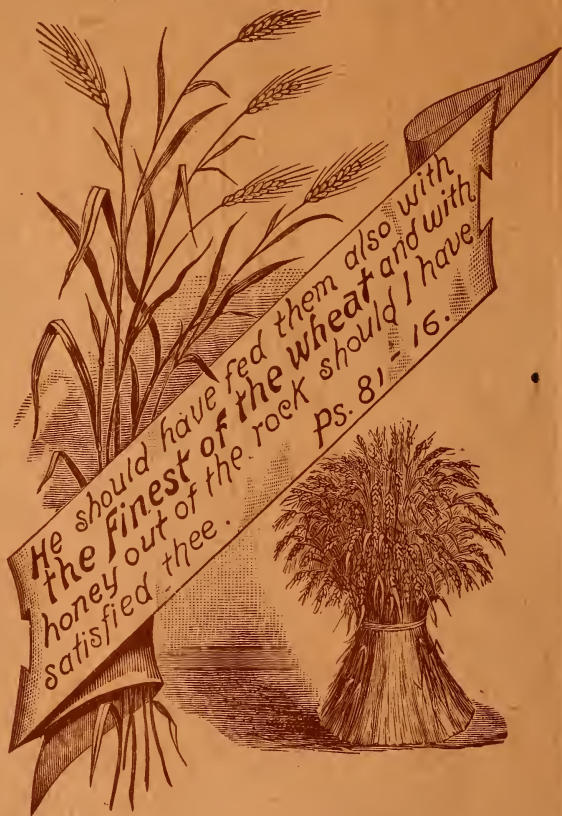 He should have fed them also with
the finest of the wheat and with
honey out of the rock should I have
satisfied thee. Ps. 81-16.